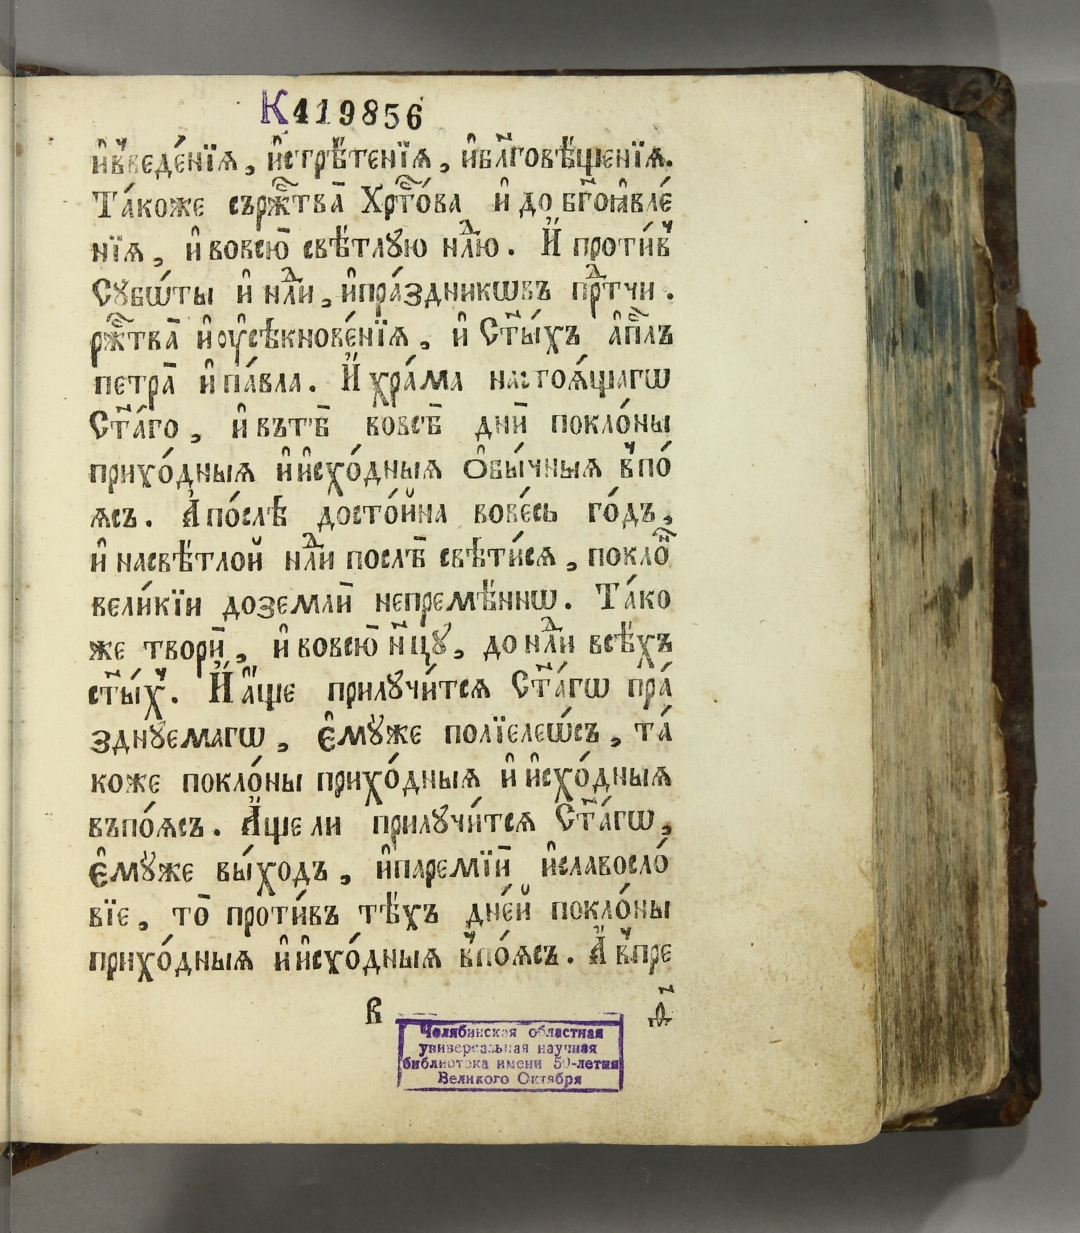 К419856
и҆в̾веде́нїѧ, и҆стрѣ́тенїѧ, и҆бл҃говѣ́щенїѧ.
Та́коже сържⷭ҇тва̀ Хрⷭ҇то́ва и҆ до бг҃оꙗ҆вле́
нїѧ, и҆ вовсю̀ свѣ́тлꙋю нлⷣю. И҆́ проти́в̾
Сꙋбѡ́ты и҆ нлⷣи, и҆пра́здникѡвъ прⷣтчи.
ржⷭ҇тва̀ и҆оу҆сѣкнове́нїѧ, и҆ Ст҃ы́хъ а҆пⷭ҇лъ
петра̀ и҆ па́вла. И҆́ хра́ма настоѧ́щагѡ
Ст҃а́го, и҆ вътѣ̀ вовсѣ̀ днѝ покло́ны
прихо́дныѧ и҆ и҆схо́дныѧ ѻ҆бы́чныѧ в̾по́
ѧсъ. А҆по́слѣ досто́йна вове́сь го́дъ,
и҆ насвѣ́тлой нлⷣи послѣ̀ свѣти́сѧ, покло́ⷩ҇
вели́кїи доземлѝ непремѣ́ннѡ. Та́ко
же твори̑, и҆ вовсю̀ н҃цꙋ, до нлⷣи всѣ́хъ
ст҃ы́х̾. И҆́ а҆́ще прилꙋчи́тсѧ Ст҃а́гѡ пра́
зднꙋемагѡ, є҆мꙋ́же полїелеѡ́съ, та́
коже покло́ны прихо́дныѧ и҆ и҆схо́дныѧ
въпо́ѧсъ. А҆́ще ли прилꙋчи́тсѧ Ст҃а́гѡ,
є҆мꙋ́же вы́ходъ, и҆паремїѝ и҆славосло́
вїе, то̀ проти́въ тѣ́хъ дне́й покло́ны
прихо́дныѧ и҆ и҆схо́дныѧ в̾по́ѧсъ. А҆́ в̾пре
в д҃
Челябинская областная
универсальная научная
библиотека имени 50-летия
Великого Октября